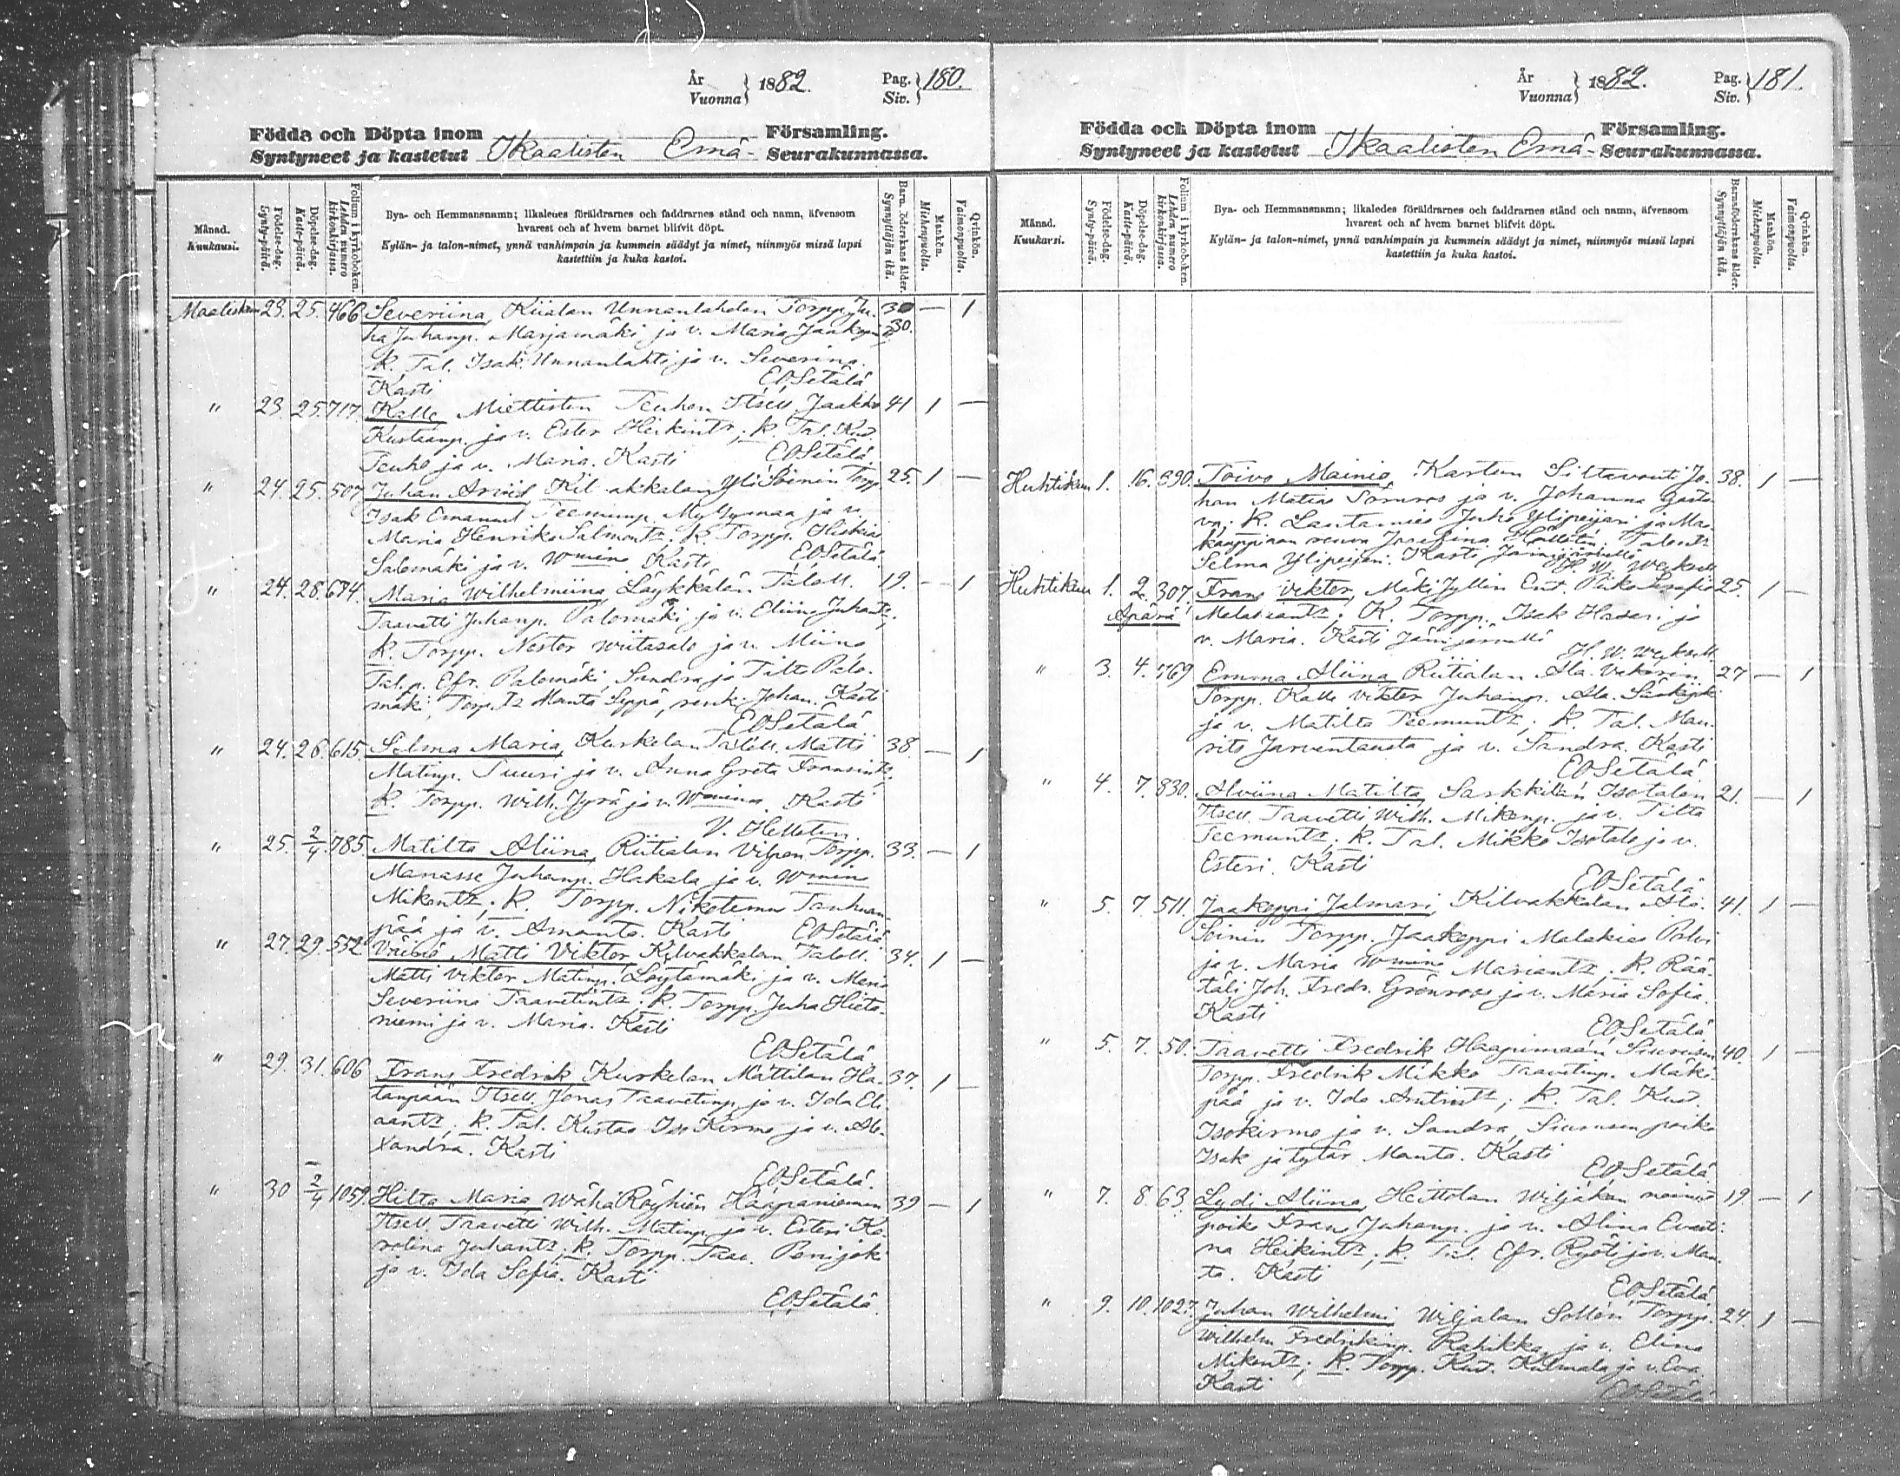 År
Vuonna } 1882.
Pag.
Siv. } 180.
Födda och Döpta inom
Syntyneet ja kastetut Ikaalisten Emä- Församling.
Seurakunnassa.
Månad.
Kuukausi.
Födelse-dag.
Synty-päivä.
Döpelse-dag.
Kaste-päivä.
Folium i kyrkoboken.
Lehden numero kirkonkirjassa.
Bya- och Hemmansnamn; likaledes föräldrarnes och faddrarnes stånd och namn, äfvensom
hvarest och af hvem barnet blifvit döpt.
Kylän- ja talon-nimet, ynnä vanhimpain ja kummein säädyt ja nimet, niinmyös missä lapsi
kastettiin ja kuka kastoi.
Barnaföderskans ålder.
Synnyttäjän ikä.
Mankön.
Miehenpuolia.
Qvinkön.
Vaimonpuolia.
Maaliskuu 23. 25. 466 Severiina, Kiialan Unnanlahden Torpp. Ju- 30 — 1
ha Juhanp. Marjamäki ja v. Maria Jaakopintr 30.
k. Tal. Isak Unnanlahti ja v. Severina.
Kasti EOSetälä
" 23 25. 717. Kalle, Miettisten Teuhon Itsell. Jaakko 41 1 —
Kustaanp. ja v. Ester Heikintr; k. Tal. Kust.
Teuho ja v. Maria. Kasti EOSetälä
" 24. 25. 507 Juhan Arvid, Kilvakkalan Yli Soinin Torp. 25. 1 —
Isak Emanuel Teemunp. Myllymaa ja v.
Maria Henrika Salmontr. k. Torpp. Hiskias
Salomäki ja v. Wmina. Kasti EOSetälä
" 24. 28. 674. Maria Wilhelmiina, Läykkälän Talell. 19. — 1
Taavetti Juhanp. Palomäki ja v. Eliina Juhantr,
k. Torpp. Nestor Wiitasalo ja v. Miina
Tal. p. Efr. Palomäki Sandra ja Tilta Palo-
mäki, Torp. Tr Manta Seppä, renki Johan. Kasti
EOSetälä
" 24. 26. 615. Selma Maria, Kurkelan Talell. Matti 38 — 1
Matinp. Suuri ja v. Anna Greta Fransintr.
k. Torpp. Wilh. Jyrä ja v. Wmina. Kasti
V. Helleten.
" 25. 2/4 785. Matilta Aliina, Riitialan Vilpon Torpp. 33. — 1
Manasse Juhanp. Hakala ja v. Wmina
Mikontr, k. Torpp. Nikotemus Tanhuan-
pää ja v. Amanta. Kasti EOSetälä
" 27. 29. 552 Väinö Matti Viktor, Kilvakkalan Talell. 34. 1 —
Matti Viktor Matinp. Löytömäki ja v. Maria
Severiina Taavetintr. k. Torpp. Juha Hieta-
niemi ja v. Maria. Kasti
EOSetälä
" 29. 31. 606 Frans Fredrik, Kurkelan Mattilan Ha- 37. 1 —
tanpään Itsell. Jonas Taavetinp. ja v. Ida Eli-
aantr, k. Tal. Kustaa Iso Kirmo ja v. Ale-
xandra. Kasti
EOSetälä.
" 30 2/4 1059. Hilta Maria, Wähä Röyhiön Haapaniemen 39 — 1
Itsell. Taavetti Wilh. Matinp. ja v. Esteri Ka-
rolina Juhantr; k. Torpp. Taav. Ponijoki
ja v. Ida Sofia. Kasti
EOSetälä.
År
Vuonna } 1882.
Pag.
Siv. } 181.
Födda och Döpta inom
Syntyneet ja kastetut Ikaalisten Emä- Församling.
Seurakunnassa.
Månad.
Kuukausi.
Födelse-dag.
Synty-päivä.
Döpelse-dag.
Kaste-päivä.
Folium i kyrkoboken.
Lehden numero kirkonkirjassa.
Bya- och Hemmansnamn; likaledes föräldrarnes och faddrarnes stånd och namn, äfvensom
hvarest och af hvem barnet blifvit döpt.
Kylän- ja talon-nimet, ynnä vanhimpain ja kummein säädyt ja nimet, niinmyös missä lapsi
kastettiin ja kuka kastoi.
Barnaföderskans ålder.
Synnyttäjän ikä.
Mankön.
Miehenpuolia.
Qvinkön.
Vaimonpuolia.
Huhtikuu 1. 16. 890. Toivo Mainio, Kartun Siltavouti Jo- 38. 1 —
han Matias Sornros ja v. Johanna Gusta-
va; k. Lautamies Juho Ylipeijari ja Maa-
kauppiaan rouva Josefina Helleten, Talontr
Selma Ylipeijari. Kasti Jämijärvellä
H. W. Weykselli
Huhtikuu 1. 2. 307. Frans Viktor, Mäki Jyllin Ent. Piika Serafia 25. 1 —
Äpärä Malakiantr; k. Torpp. Isak Hasari ja
v. Maria. Kasti Jämijärvellä
H. W. Weykselli.
" 3. 4. 769 Emma Aliina, Riitialan Ala Vakerin 27 — 1
Torpp. Kalle Viktor Juhanp. Ala
ja v. Matilta Teemuntr; k. Tal. Mau-
rits Jarventausta ja v. Sandra. Kasti
EOSetälä.
" 4. 7. 830. Alviina Matilta, Sarkkilan Isotalon 21. — 1
Itsell. Taavetti Wilh. Mikonp. ja v. Tilta
Teemuntr; k. Tal. Mikko Isotalo ja v.
Esteri. Kasti
EOSetälä
" 5. 7. 511. Jaakoppi Jalmari, Kilvakkalan Ala- 41. 1 —
Soinin Torpp. Jaakoppi Malakias Palvi
ja v. Maria Wmina Mariantr; k. Rää-
täli Joh. Fredr. Grönroos ja v. Maria Sofia.
Kasti
EOSetälä
" 5. 7. 50. Taavetti Fredrik, Haapimaan Siurusen 40. 1 —
Torpp. Fredrik Mikko Taavetinp. Mäki-
pää ja v. Ida Antintr; k. Tal. Kust.
Isokirmo ja v. Sandra, Siurusen poika
Isak ja tytär Manta. Kasti
EOSetälä.
" 7. 8. 63. Lydi Aliina, Heittolan Wiljakan nainut 19. — 1
poika Frans Juhanp. ja v. Alina Evasti-
na Heikintr; k. Tal. Efr. Ryöti ja v. Man-
ta. Kasti
EOSetälä
" 9. 10. 1027. Juhan Wilhelmi, Wiljalan Sollon Torpp. 24. 1 —
Wilhelm Fredrikinp. Rahikka ja v. Elina
Mikontr; k. Torpp. Kust. Kulmala ja v. Eva
Kasti EOSetälä